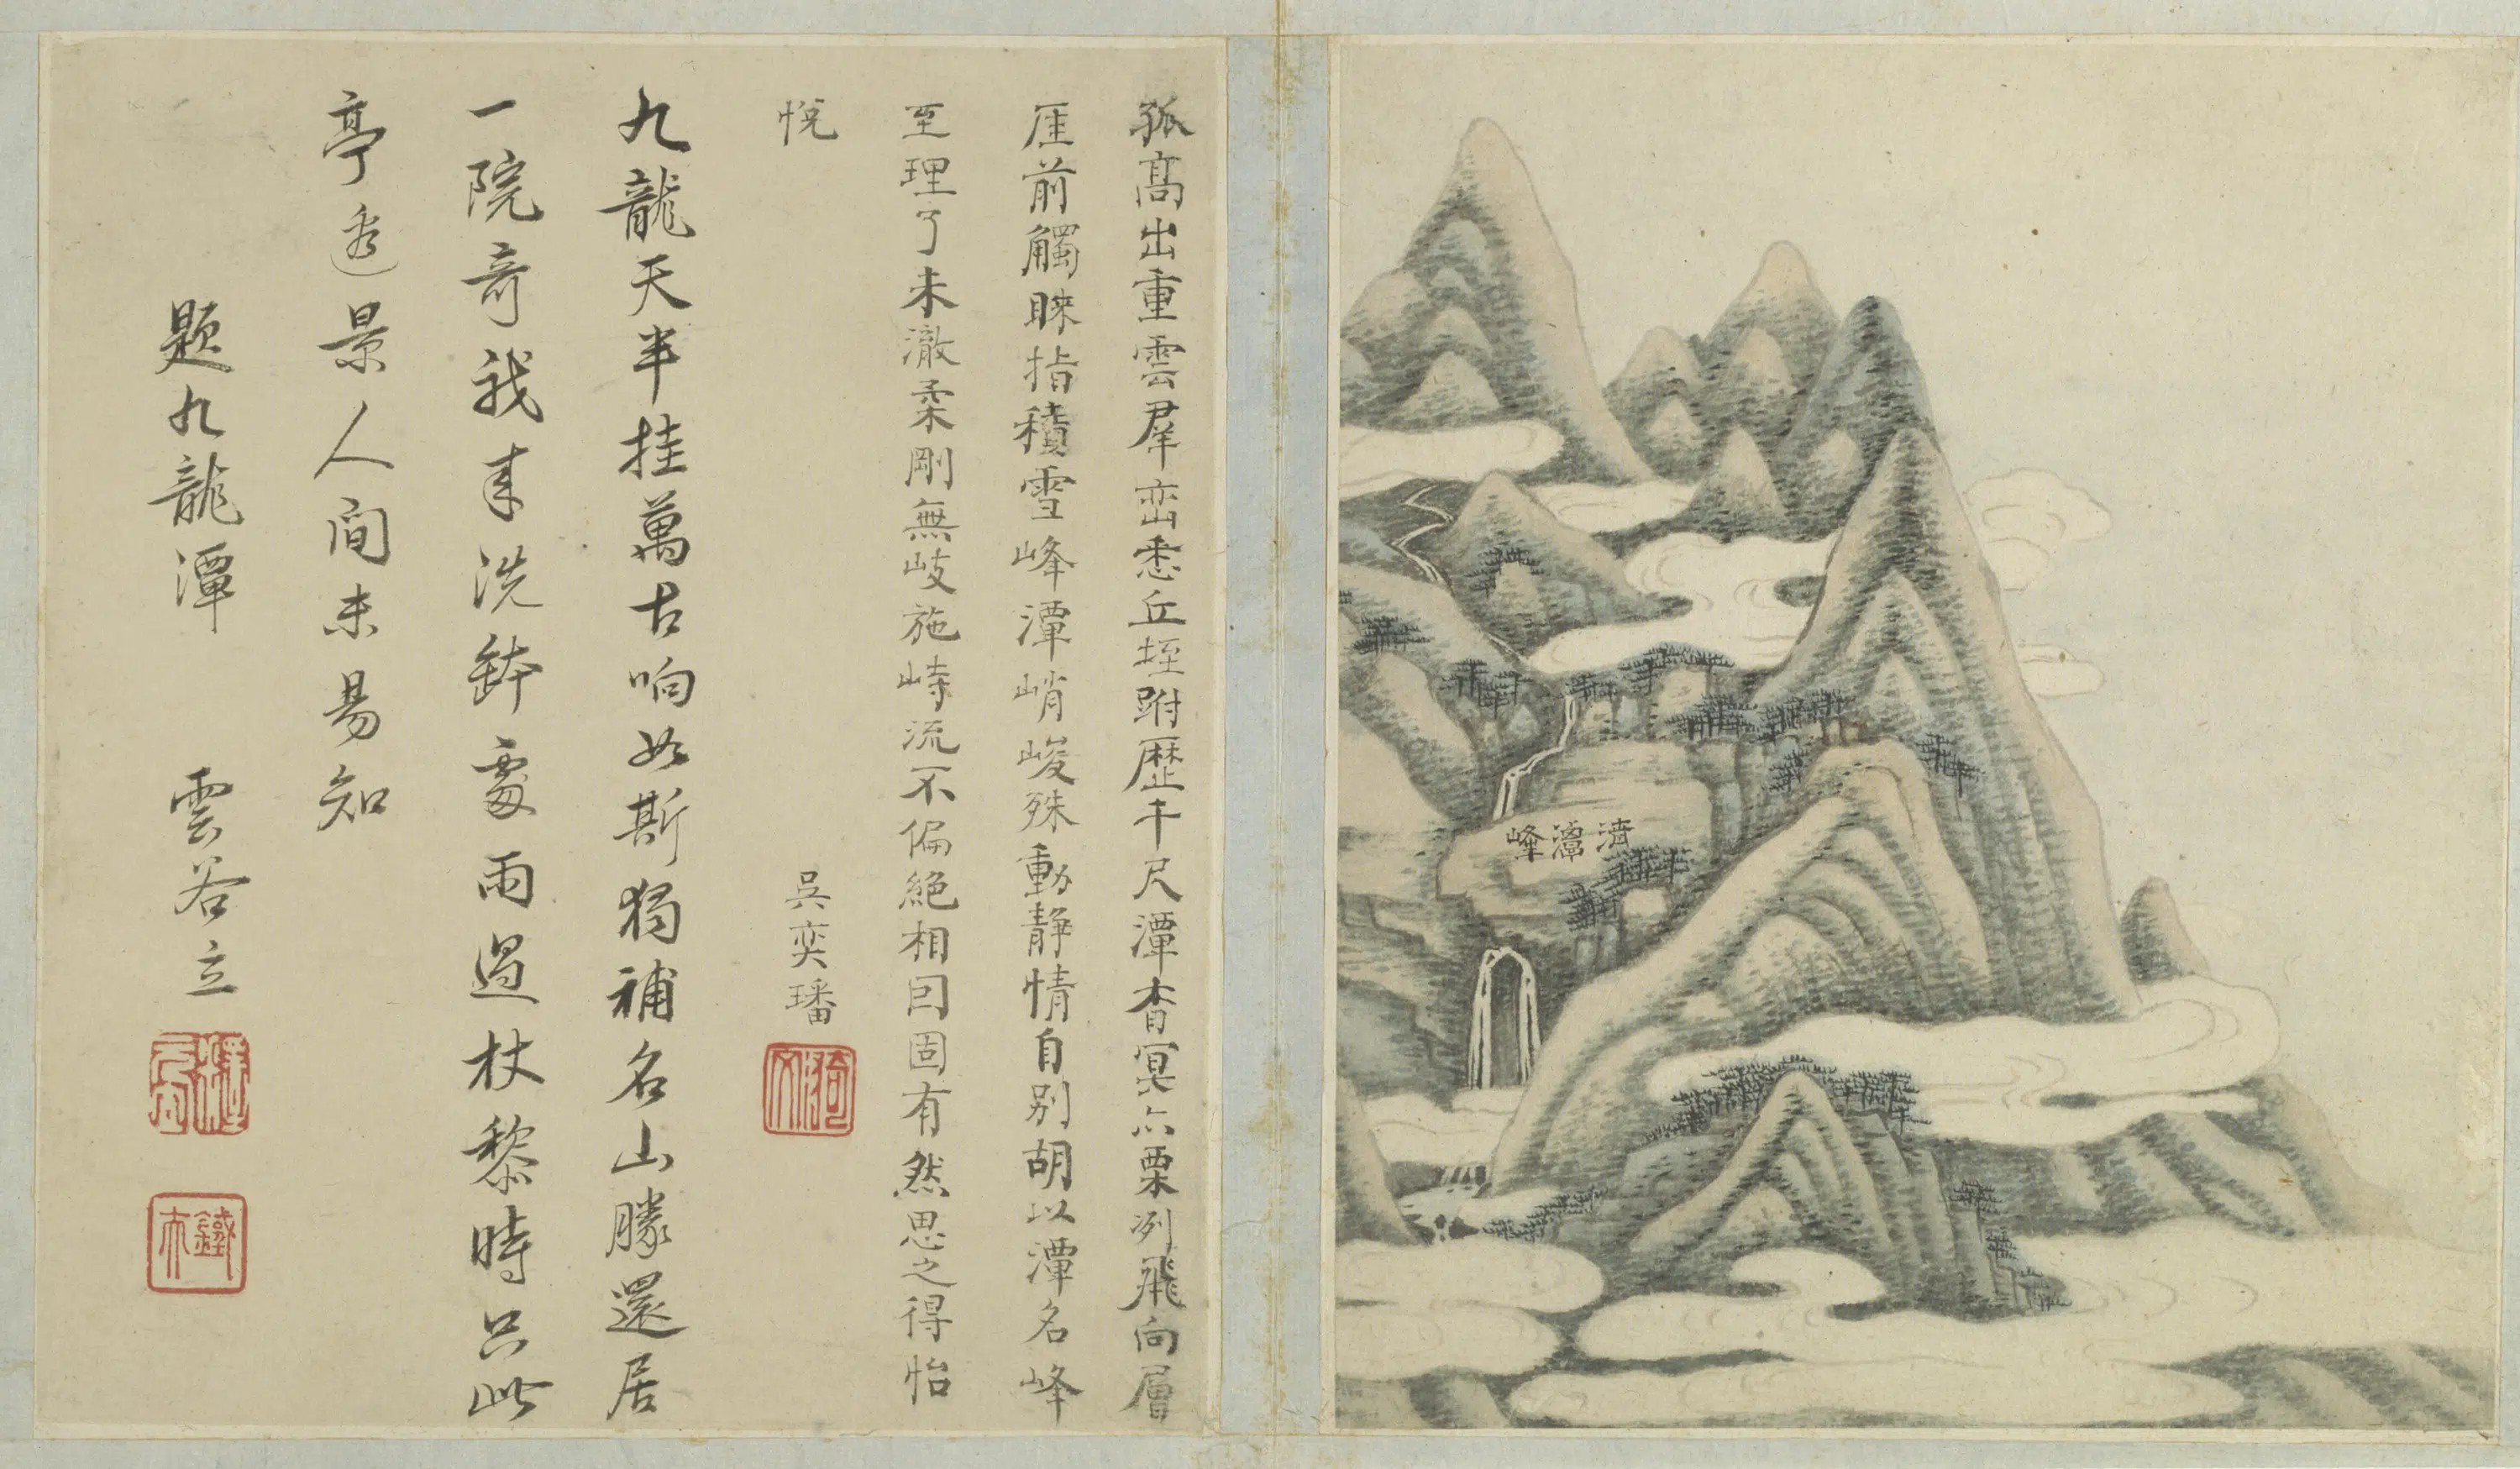 濟潭峰
孤高出重雲羣峦悉丘垤跗歷千尺潭杳冥亦栗冽飛向層
厓前觸睐指積雪峰潭峭峻殊動靜情自别胡以潭名峰
至理了未澈柔剛無岐施峙流不偏絶相囙固有然思之得怡
悦
吳奕璠
九龍天半挂萬古响如斯獨補名山勝還居
一院奇我来洗鉢處雨過杖黎時只此
亭邊景人间未易知
題九龍潭
雲谷立